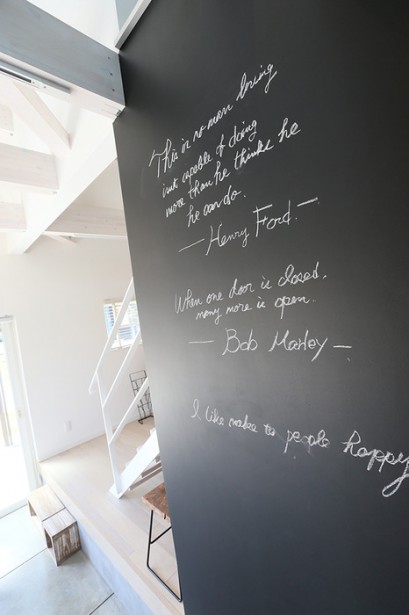 This is no man living
isn't capable of doing
more than he thinks he
he can do.
— Henry Ford. —
When one door is closed,
many more is open.
— Bob Marley —
I like makes to people happy